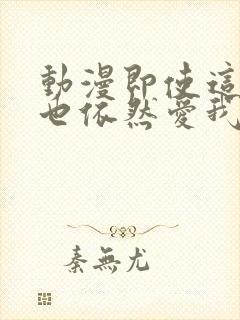 動漫即使這
也依然愛我
秦無尤